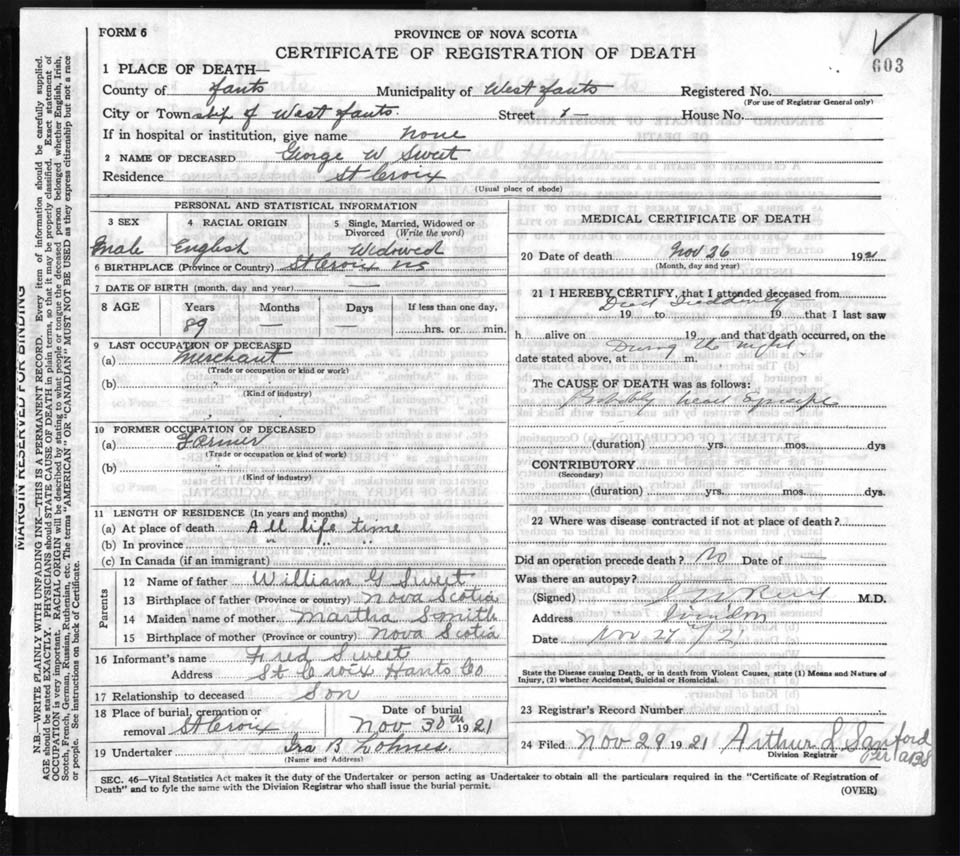 FORM 6
PROVINCE OF NOVA SCOTIA
CERTIFICATE OF REGISTRATION OF DEATH
603
1 PLACE OF DEATH—
County of Hants Municipality of West Hants Registered No.
(For use of Registrar General only)
City or Township of West Hants. Street House No.
If in hospital or institution, give name none
2 NAME OF DECEASED George W Sweet
Residence St Croix
(Usual place of abode)
PERSONAL AND STATISTICAL INFORMATION
3 SEX 4 RACIAL ORIGIN 5 Single, Married, Widowed or Divorced (Write the word)
Male English Widowed
6 BIRTHPLACE (Province or Country) St Croix NS
7 DATE OF BIRTH (month, day and year) —
8 AGE Years Months Days If less than one day,
89 — — hrs. or min.
9 LAST OCCUPATION OF DECEASED
(a) Merchant
(Trade or occupation or kind or work)
(b)
(Kind of industry)
10 FORMER OCCUPATION OF DECEASED
(a) Farmer
(Trade or occupation or kind of work)
(b)
(Kind of industry)
11 LENGTH OF RESIDENCE (In years and months)
(a) At place of death All life time
(b) In province " " "
(c) In Canada (if an immigrant)
Parents
12 Name of father William G Sweet
13 Birthplace of father (Province or country) Nova Scotia
14 Maiden name of mother Martha Smith
15 Birthplace of mother (Province or country) Nova Scotia
16 Informant's name Fred Sweet
Address St Croix Hants Co
17 Relationship to deceased Son
18 Place of burial, cremation or removal St Croix Date of burial Nov 30th 1921
19 Undertaker Ira B Lohnes
(Name and Address)
MEDICAL CERTIFICATE OF DEATH
20 Date of death Nov 26 1921
(Month, day and year)
21 I HEREBY CERTIFY, that I attended deceased from
Died Suddenly
19 to 19 that I last saw
h alive on 19 and that death occurred, on the
During the night
date stated above, at m.
The CAUSE OF DEATH was as follows:
Probably heart
(duration) yrs. mos. dys
CONTRIBUTORY
(Secondary)
(duration) yrs. mos. dys.
22 Where was disease contracted if not at place of death?
Did an operation precede death? No Date of —
Was there an autopsy? —
(Signed) M.D.
Address Windsor
Date Nov 27/21
State the Disease causing Death, or in death from Violent Causes, state (1) Means and Nature of Injury, (2) whether Accidental, Suicidal or Homicidal.
23 Registrar's Record Number
24 Filed Nov 29 1921 Arthur S Sanford
Division Registrar
Per
SEC. 46—Vital Statistics Act makes it the duty of the Undertaker or person acting as Undertaker to obtain all the particulars required in the "Certificate of Registration of
Death" and to fyle the same with the Division Registrar who shall issue the burial permit.
(OVER)
MARGIN RESERVED FOR BINDING
N.B.—WRITE PLAINLY WITH UNFADING INK—THIS IS A PERMANENT RECORD. Every item of information should be carefully supplied.
AGE should be stated EXACTLY. PHYSICIANS should STATE CAUSE OF DEATH in plain terms, so that it may be properly classified. Exact statement of
OCCUPATION is very important. RACIAL ORIGIN will be described by stating to what people or tongue the deceased person belonged whether English, Irish,
Scotch, French, German, Russian, Ruthenian, etc. The terms "AMERICAN" OR "CANADIAN" MUST NOT BE USED as they express citizenship but not a race
or people. See instructions on back of Certificate.